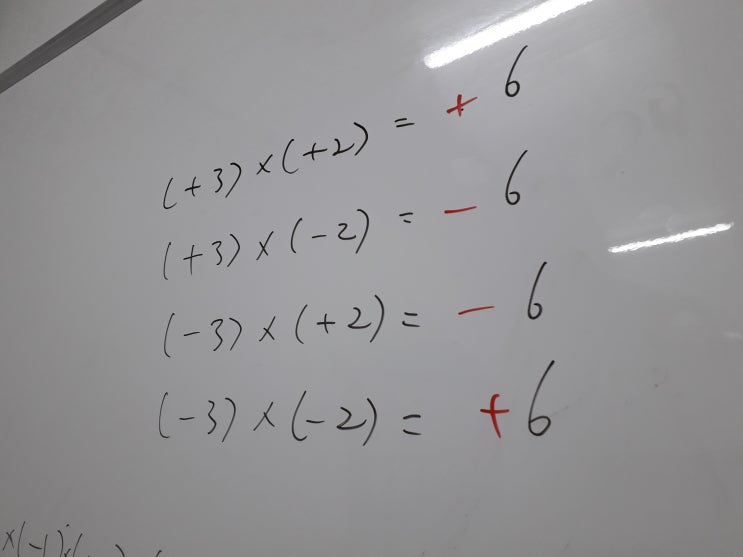 (+3)×(+2) = + 6
(+3)×(-2) = - 6
(-3)×(+2) = - 6
(-3)×(-2) = +6
×(-1)